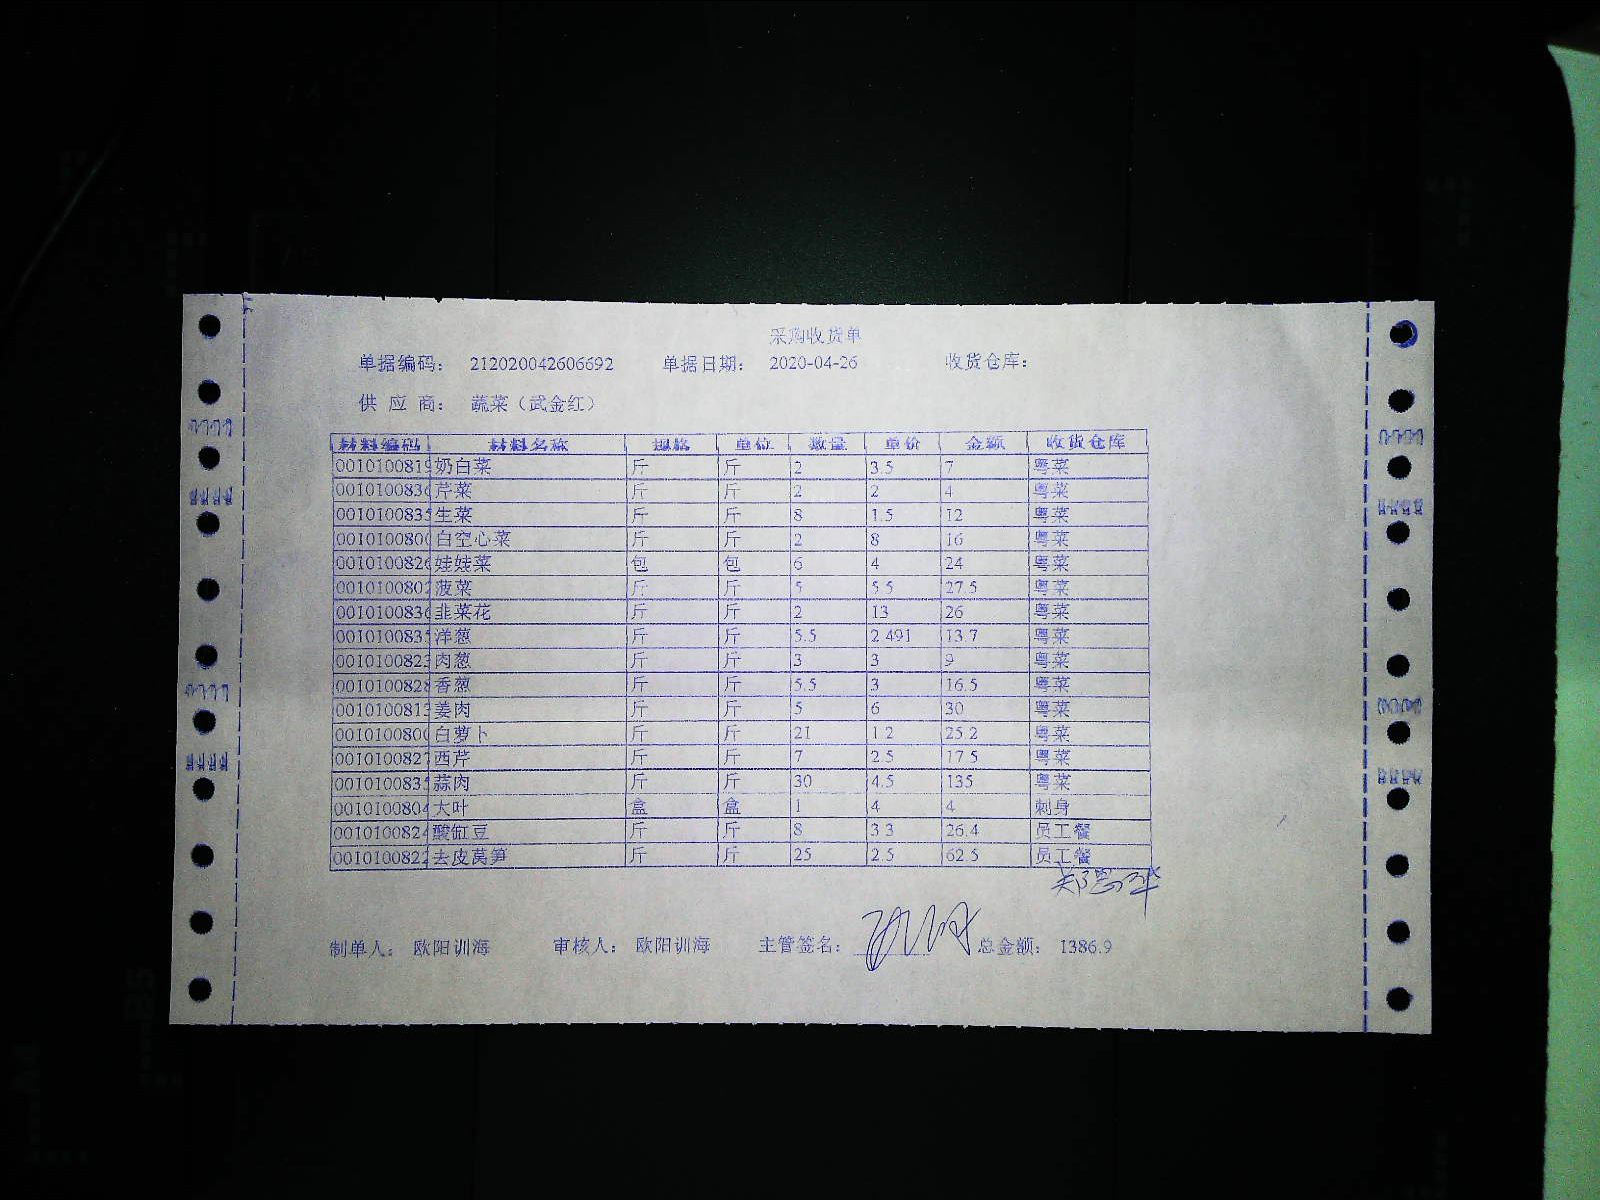 采购收货单
单据编码： 212020042606692 单据日期： 2020-04-26 收货仓库：
供 应 商： 蔬菜（武金红）
材料编码 材料名称 规格 单位 数量 单价 金额 收货仓库
0010100819 奶白菜 斤 斤 2 3.5 7 粤菜
001010083 芹菜 斤 斤 2 2 4 粤菜
0010100835 生菜 斤 斤 8 1.5 12 粤菜
001010080 白空心菜 斤 斤 2 8 16 粤菜
001010082 娃娃菜 包 包 6 4 24 粤菜
001010080 菠菜 斤 斤 5 5.5 27.5 粤菜
001010083 韭菜花 斤 斤 2 13 26 粤菜
001010083 洋葱 斤 斤 5.5 2.491 13.7 粤菜
0010100823 肉葱 斤 斤 3 3 9 粤菜
0010100828 香葱 斤 斤 5.5 3 16.5 粤菜
0010100813 姜肉 斤 斤 5 6 30 粤菜
001010080 白萝卜 斤 斤 21 1.2 25.2 粤菜
0010100827 西芹 斤 斤 7 2.5 17.5 粤菜
001010083 蒜肉 斤 斤 30 4.5 135 粤菜
0010100804 大叶 盒 盒 1 4 4 刺身
0010100824 酸缸豆 斤 斤 8 3.3 26.4 员工餐
0010100822 去皮莴笋 斤 斤 25 2.5 62.5 员工餐
制单人： 欧阳训海 审核人： 欧阳训海 主管签名： 总金额： 1386.9